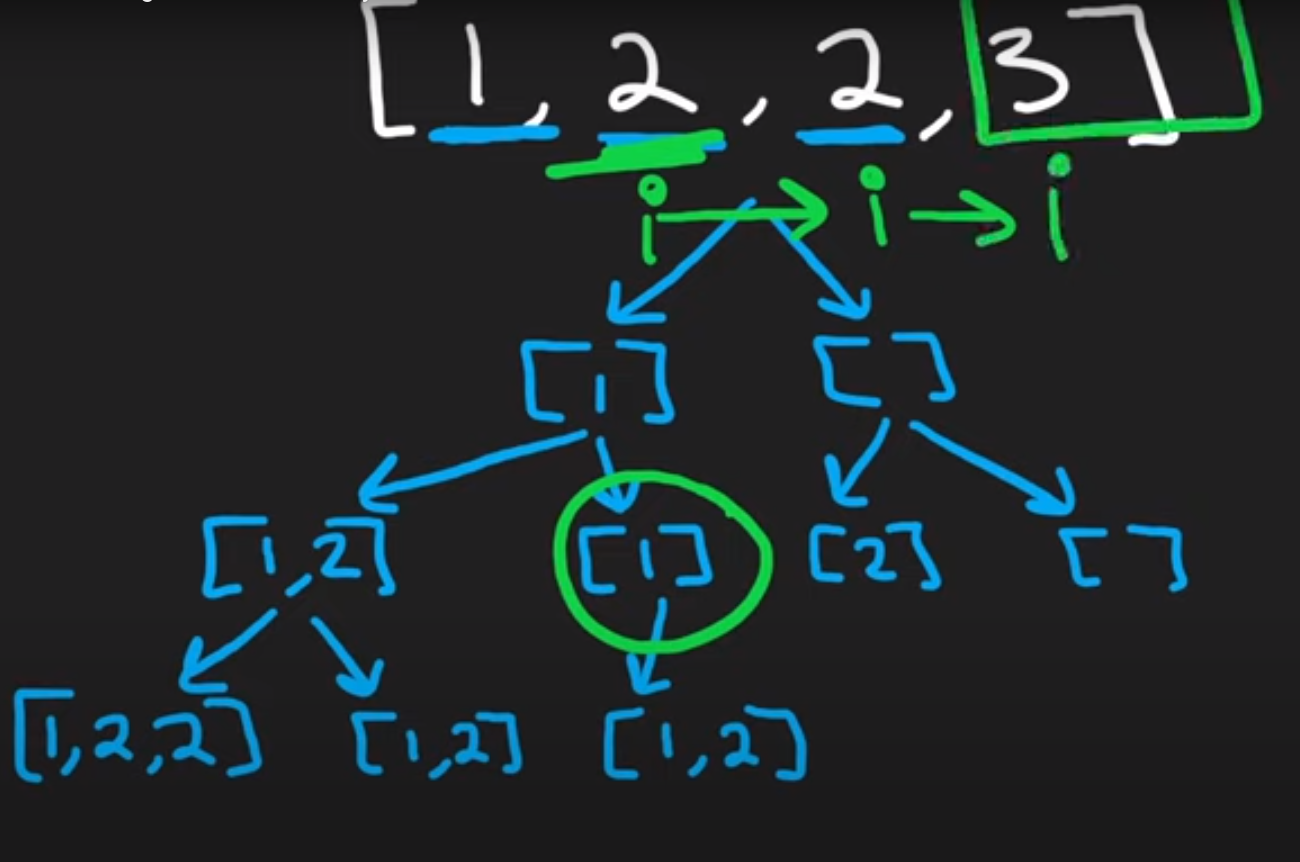 [1, 2, 2, 3]
i → i → i
[1] []
[1,2] [1] [2] []
[1,2,2] [1,2] [1,2]